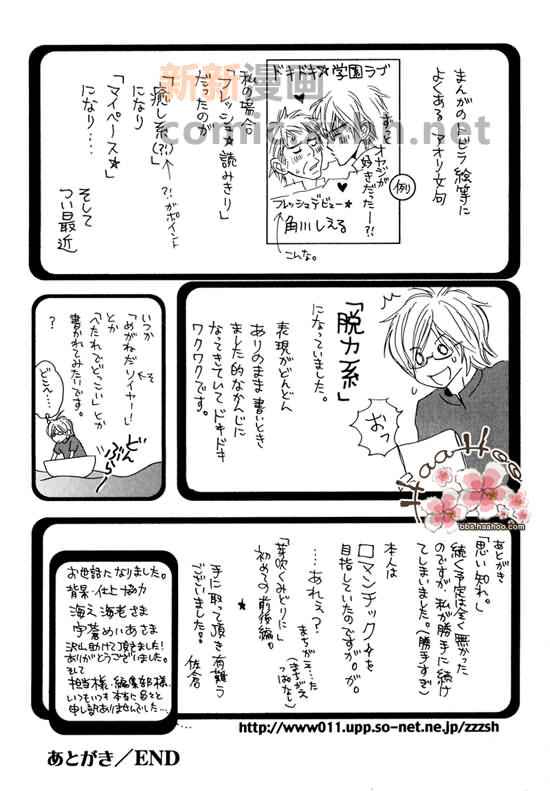 まんがのトビラ絵等に
よくある アオリ文句
例
ドキドキ☆学園ラブ
ずっと
オヤジが
好きだったー?!
フレッシュデビュー★
角川しえる
こんな。
私の場合
「フレッシュ☆読みきり」
だったのが
「癒し系(?!)」
になり
?!がポイント
「マイペース★」
になり…
そして
つい最近
「脱力系」
になっていました。
表現がどんどん
ありのまま書いとき
ました的なかんじに
なってきていてドキドキ
ワクワクです。
おっ
いつか
「めがねだソイヤー!」
とか
「へたれでどっこい」とか
書かれてみたいです。
?
どこへ…
どんぶらー
あとがき
「思い知れ。」
続く予定は全く無かった
のですが、私が勝手に続け
てしまいました。(勝手すぎ)
本人は
ロマンチック★を
目指していたのですが。が。
……あれえ?
まちがえ…た
(まちがえっぱなし)
「芽吹くみどりに」
初めての前後編。
★
手に取って頂き有難う
ございました。 佐倉
お世話になりました。
背景・仕上協力
海え 海老さま
宇蒼めいあさま
沢山助けて頂きました!
ありがとうございました。
そして
担当様・編集部様
いつもいつも本当に色々と
申し訳ありませんでした…
http://www011.upp.so-net.ne.jp/zzzsh
あとがき/END
新新漫画
comic.xxbh.net
HaaHoo
bbs.haahoo.com